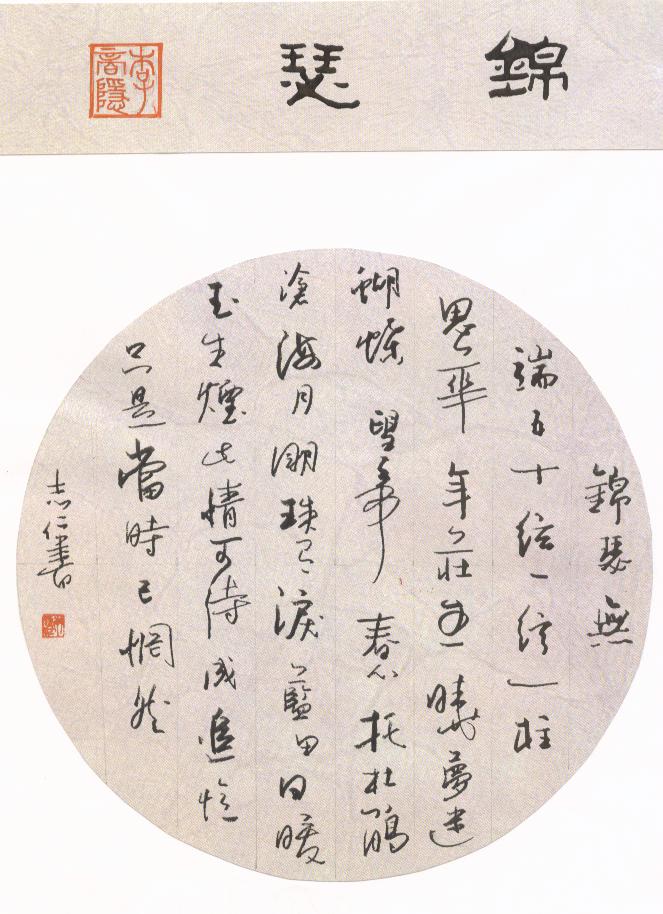 錦瑟
李商隱
錦瑟無
端五十絃一絃一柱
思華年莊生曉夢迷
蝴蝶望帝春心托杜鵑
滄海月朙珠有淚藍田日暖
玉生煙此情可待成追憶
只是當時已惘然
志仁書